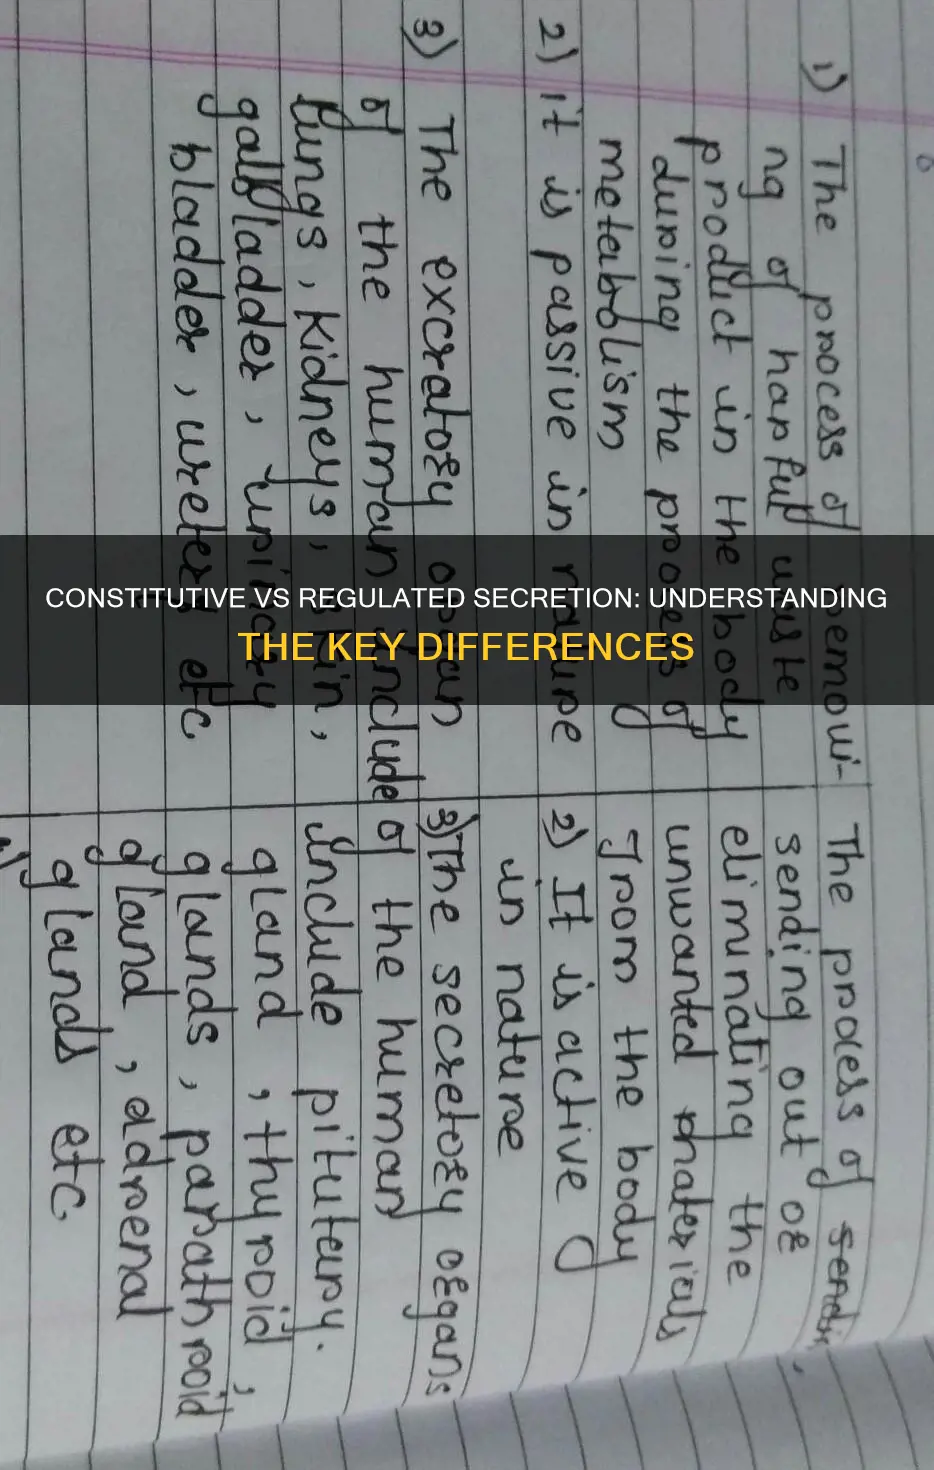 1) The process of removi-
ng of harful waste
product in the body
during the process of
metabolism
2) it is passive in nature
3) The excratory organ
of the human include
lungs, Kidneys, skin,
gallbladder, urinary
bladder, ureters etc
The process of sendin
sending out or
eliminating the
unwanted materials
from the body
2) It is active
in nature
3) The secretory organs
of the human
include pitutary.
gland, thyroid,
glands, parathroid
gland, adrenal
glands etc.
CONSTITUTIVE VS REGULATED SECRETION: UNDERSTANDING
THE KEY DIFFERENCES